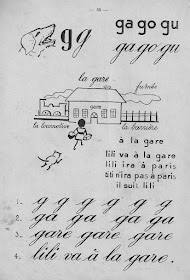 g g
ga go gu
ga go gu
la gare
fumée
gare
la locomotive
la barrière
à la gare
lili va à la gare
lili ira à paris
titi n'ira pas à paris
il suit lili
1. g g g g g g
2. ga ga ga ga
3. gare gare gare
4. lili va à la gare.